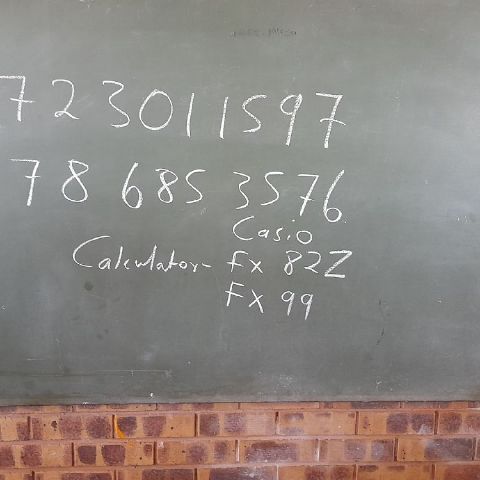 723011597
78 685 3576
Casio
Calculator- fx 82Z
FX 99